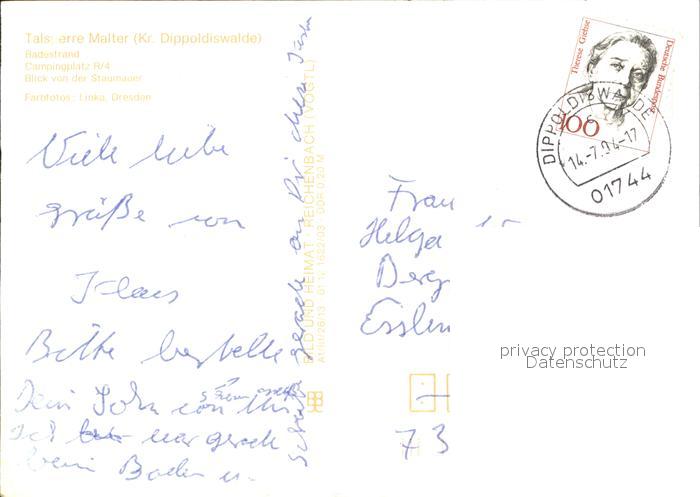 Talsperre Malter (Kr. Dippoldiswalde)
Badestrand
Campingplatz R/4
Blick von der Staumauer
Farbfotos: Linka, Dresden
Viele liebe
Grüße von
Klaus
Bitte bestelle
Dein Sohn von
Ich war gerade
beim Baden u.
gerade an Dich
BILD UND HEIMAT · REICHENBACH (VOGTL)
DDR 0,20 M
Therese Giehse
Deutsche Bundespost
100
DIPPOLDISWALDE
14.-7.94-17
01744
Frau
Helga
Berg
Esslin
73
privacy protection
Datenschutz